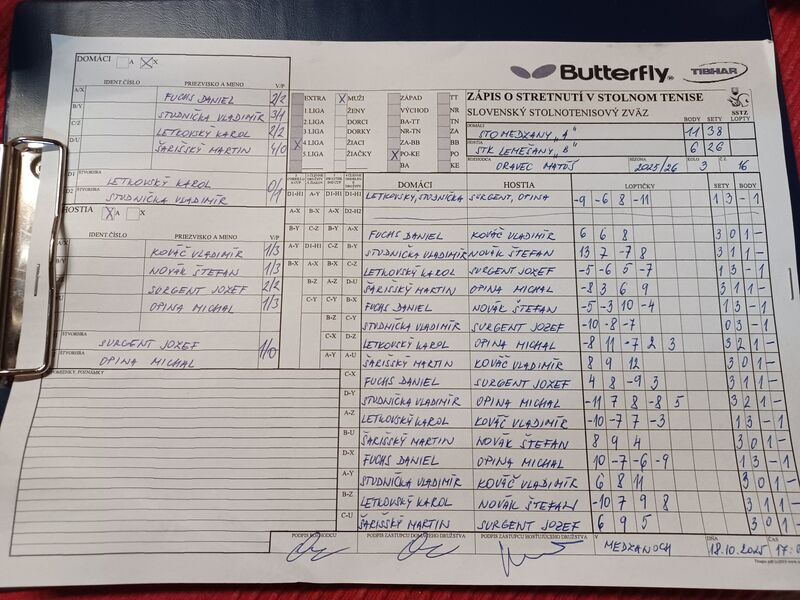 DOMÁCI A X
Butterfly
TIBHAR
IDENT. ČÍSLO PRIEZVISKO A MENO V/P
A/X FUCHS DANIEL 2/2
B/Y STUDNIČKA VLADIMÍR 3/1
C/Z LETKOVSKÝ KAROL 2/2
D/U ŠARIŠSKÝ MARTIN 4/0
ŠTVORHRA
D1 LETKOVSKÝ KAROL 0/1
D2 STUDNIČKA VLADIMÍR
HOSTIA A X
IDENT. ČÍSLO PRIEZVISKO A MENO V/P
A/X KOVÁČ VLADIMÍR 1/3
B/Y NOVÁK ŠTEFAN 1/3
SURGENT JOZEF 2/2
OPINA MICHAL 1/3
ŠTVORHRA SURGENT JOZEF 1/0
ŠTVORHRA OPINA MICHAL
POZNÁMKY
EXTRA X MUŽI ZÁPAD TT
1.LIGA ŽENY VÝCHOD NR
2.LIGA DORCI BA-TT TN
3.LIGA DORKY NR-TN ZA
X 4.LIGA ŽIACI ZA-BB BB
5.LIGA ŽIAČKY X PO-KE PO
BA KE
ZÁPIS O STRETNUTÍ V STOLNOM TENISE
SLOVENSKÝ STOLNOTENISOVÝ ZVÄZ
SSTZ
BODY SETY LOPTY
DOMÁCI STO MEDZANY „A“ 11 38
HOSTIA STK LEMEŠANY „B“ 6 26
ROZHODCA ORAVEC MATÚŠ SEZÓNA 2025/26 KOLO 3 Č.Z. 16
DOMÁCI HOSTIA LOPTIČKY SETY BODY
LETKOVSKÝ, STUDNIČKA SURGENT, OPINA -9 -6 8 -11 1 3 - 1
FUCHS DANIEL KOVÁČ VLADIMÍR 6 6 8 3 0 1 -
STUDNIČKA VLADIMÍR NOVÁK ŠTEFAN 13 7 -7 8 3 1 1 -
LETKOVSKÝ KAROL SURGENT JOZEF -5 -6 5 -7 1 3 - 1
ŠARIŠSKÝ MARTIN OPINA MICHAL -8 3 6 9 3 1 1 -
FUCHS DANIEL NOVÁK ŠTEFAN -5 -3 10 -4 1 3 - 1
STUDNIČKA VLADIMÍR SURGENT JOZEF -10 -8 -7 0 3 - 1
LETKOVSKÝ KAROL OPINA MICHAL -8 11 -7 2 3 3 2 1 -
ŠARIŠSKÝ MARTIN KOVÁČ VLADIMÍR 8 9 12 3 0 1 -
C-X FUCHS DANIEL SURGENT JOZEF 4 8 -9 3 3 1 1 -
D-Y STUDNIČKA VLADIMÍR OPINA MICHAL -11 7 8 -8 5 3 2 1 -
A-Z LETKOVSKÝ KAROL KOVÁČ VLADIMÍR -10 -7 7 -3 1 3 - 1
B-U ŠARIŠSKÝ MARTIN NOVÁK ŠTEFAN 8 9 4 3 0 1 -
D-X FUCHS DANIEL OPINA MICHAL 10 -7 -6 -9 1 3 - 1
A-Y STUDNIČKA VLADIMÍR KOVÁČ VLADIMÍR 6 8 11 3 0 1 -
B-Z LETKOVSKÝ KAROL NOVÁK ŠTEFAN -10 7 9 8 3 1 1 -
C-U ŠARIŠSKÝ MARTIN SURGENT JOZEF 6 9 5 3 0 1 -
PODPIS ROZHODCU PODPIS ZÁSTUPCU DOMÁCEHO DRUŽSTVA PODPIS ZÁSTUPCU HOSŤUJÚCEHO DRUŽSTVA V MEDZANOCH DŇA 18.10.2025 ČAS